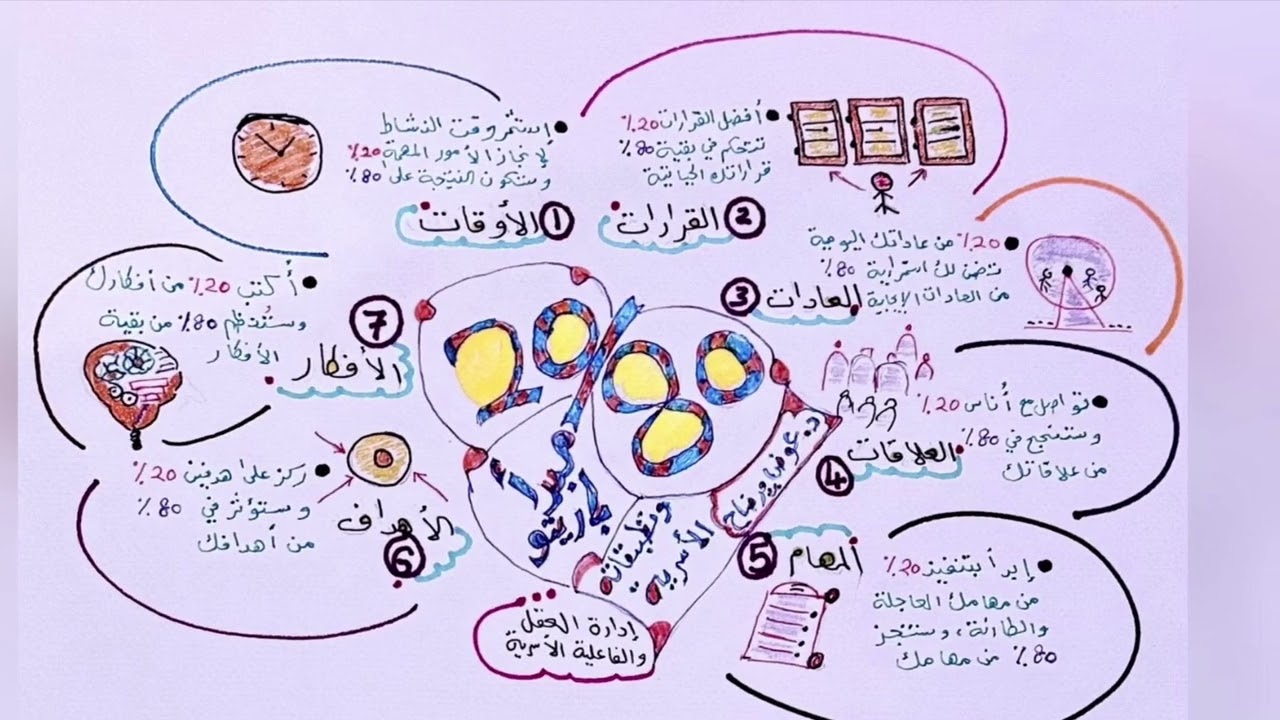 20/80
مبدأ
باريتو
وتطبيقاته
الأسرية
د. عوض مرضاح
إدارة العقل
والفاعلية الأسرية
1 الأوقات
استثمر وقت النشاط
لإنجاز الأمور المهمة 20٪
وستكون النتيجة على 80٪
2 القرارات
أفضل القرارات 20٪
تتحكم في بقية 80٪
قراراتك الحياتية
3 العادات
20٪ من عاداتك اليومية
تضمن لك استمرارية 80٪
من العادات الإيجابية
4 العلاقات
تواصل مع أناس 20٪
وستنجح في 80٪
من علاقاتك
5 المهام
إبدأ بتنفيذ 20٪
من مهامك العاجلة
والطارئة، وستنجز
80٪ من مهامك
6 الأهداف
ركز على هدفين 20٪
وستؤثر في 80٪
من أهدافك
7 الأفكار
أكتب 20٪ من أفكارك
وستُنظم 80٪ من بقية
الأفكار